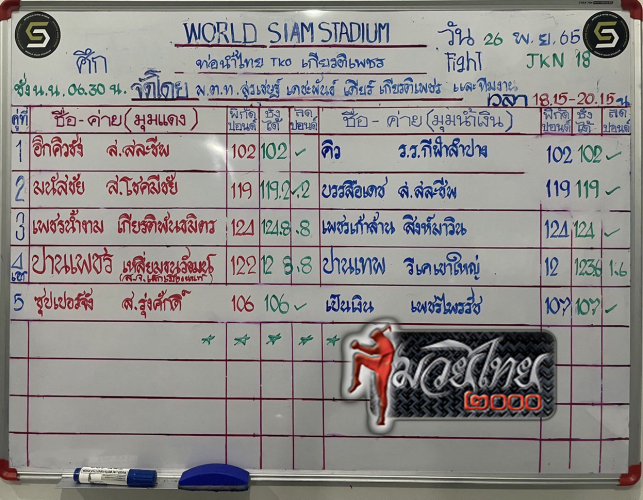 WORLD SIAM STADIUM
วัน 26 พ.ย.65
ศึก ท่อน้ำไทย TKO เกียรติเพชร Fight JKN 18
ชั่ง น.น. 06.30 น. จัดโดย พ.ต.ท. สุรเชษฐ์ เดชะพันธ์ เสี่ยร์ เกียรติเพชร และทีมงาน เวลา 18.15-20.15 น
คู่ที่ ชื่อ-ค่าย (มุมแดง) พิกัด ปอนด์ ชั่ง ได้ ลด ปอนด์ ชื่อ - ค่าย (มุมน้ำเงิน) พิกัด ปอนด์ ชั่ง ได้ ลด ปอนด์
1 ฮิกคิวชัง ส.สละชีพ 102 102 ✓ คิว ร.ร.กีฬาลำปาง 102 102 ✓
2 มนัสชัย ส.โชคมีชัย 119 119.2 .2 บรรลือเดช ส.สละชีพ 119 119 ✓
3 เพชรน้ำงาม เกียรติพันธมิตร 124 124.8 .8 เพชรเก้าล้าน สิงห์มาวิน 124 124 ✓
4 เอก ปานเพชร เหลี่ยมธนวัฒน์ 122 12 3.8 ปานเทพ วีเคเขาใหญ่ 12 123.6 1.6
5 ซุปเปอร์จัง ส.รุ่งศักดิ์ 106 106 ✓ เป็นเงิน เพชรไพรรัช 107 107 ✓
มวยไทย
๒๐๐๐